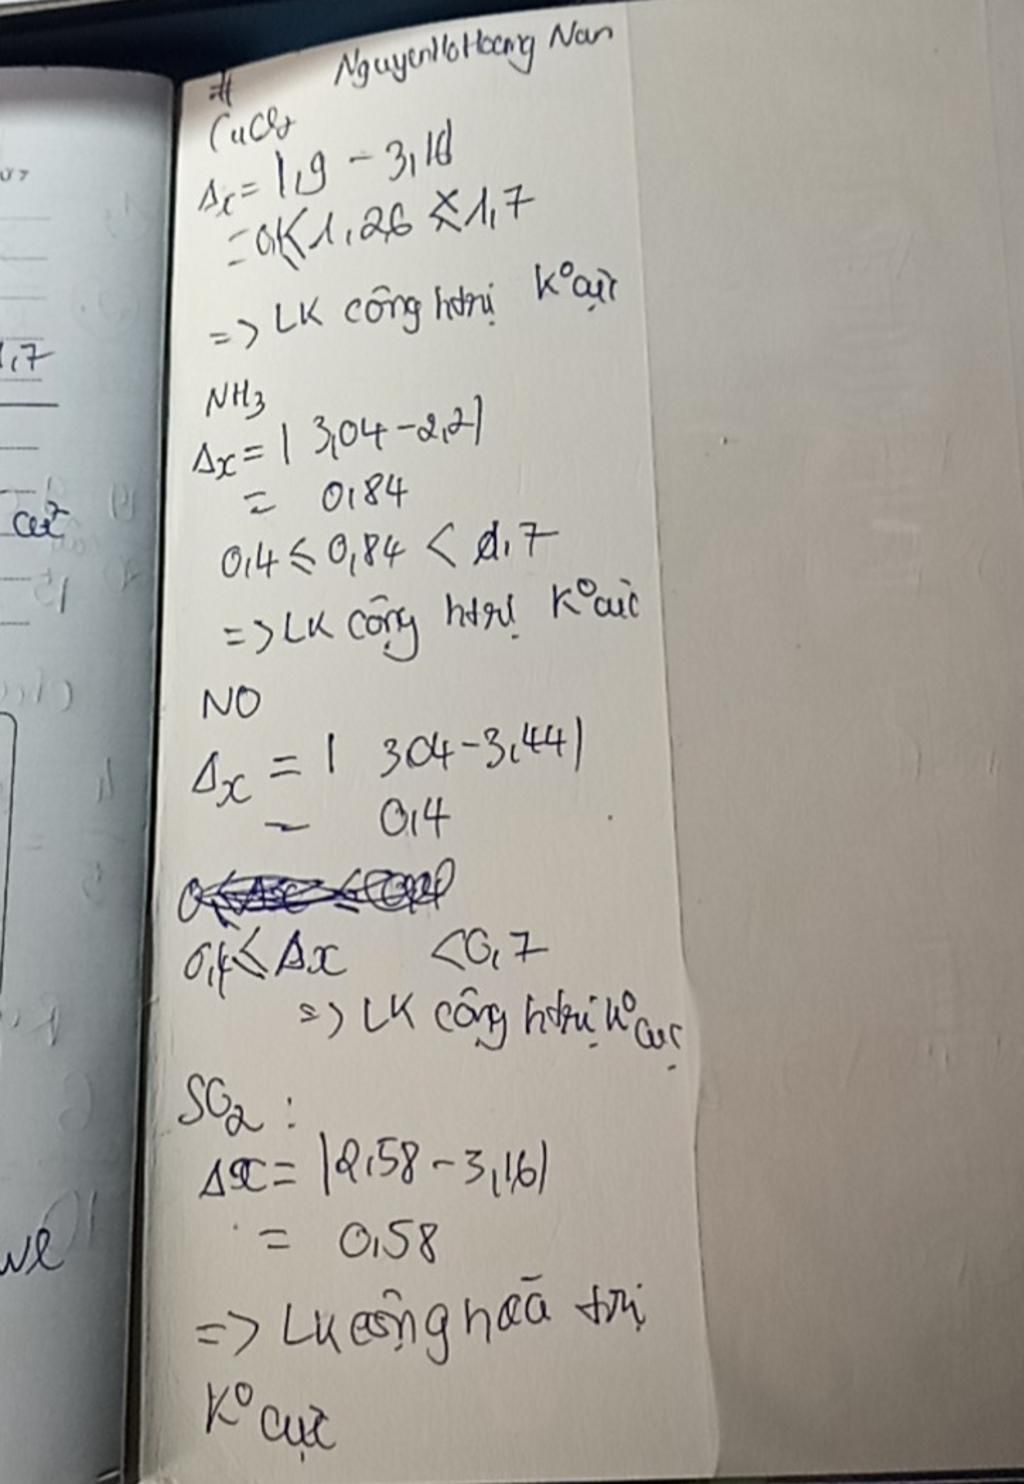 #
CuCl2
Δx = |1,9 - 3,16|
= 0,4 < 1,26 < 1,7
=> LK cộng htrị K° cực
NH3
Δx = | 3,04 - 2,2|
= 0,84
0,4 ≤ 0,84 < 1,7
=> LK cộng htrị K° cực
NO
Δx = | 304 - 3,44|
= 0,4
0,4 ≤ Δx < 0,7
=> LK cộng htrị K° cực
SO2 :
Δx = |2,58 - 3,16|
= 0,58
=> LK cộng hoá trị
K° cực
1,7